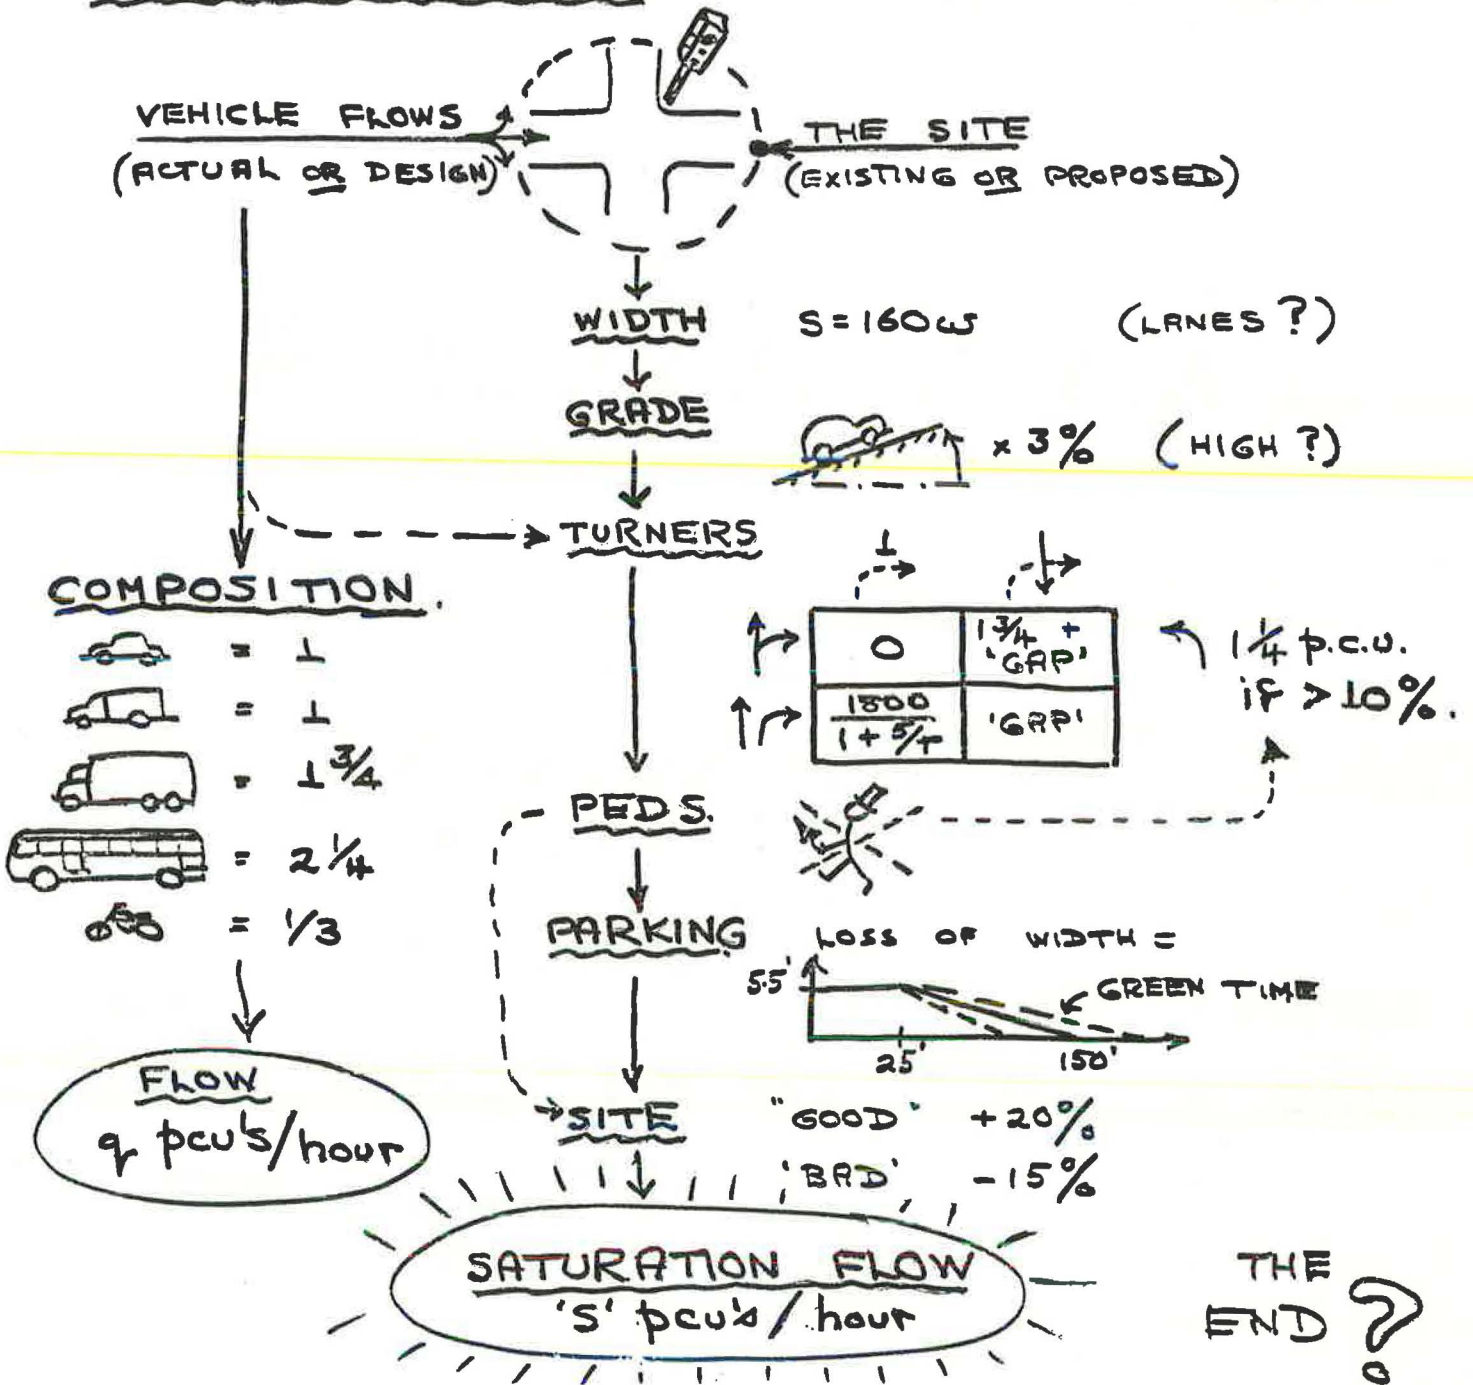 VEHICLE FLOWS
(ACTUAL OR DESIGN)
THE SITE
(EXISTING OR PROPOSED)
WIDTH
S = 160w
(LANES ?)
GRADE
x 3%
(HIGH ?)
TURNERS
COMPOSITION.
= 1
= 1
= 1 3/4
= 2 1/4
= 1/3
1
0
1 3/4 +
'GAP'
1800
1 + 5/r
'GAP'
1 1/4 p.c.u.
if > 10%.
PEDS.
PARKING
LOSS OF WIDTH =
5.5'
GREEN TIME
25'
150'
FLOW
q pcu's/hour
SITE
"GOOD" +20%
'BAD' -15%
SATURATION FLOW
'S' pcu's/hour
THE
END ?